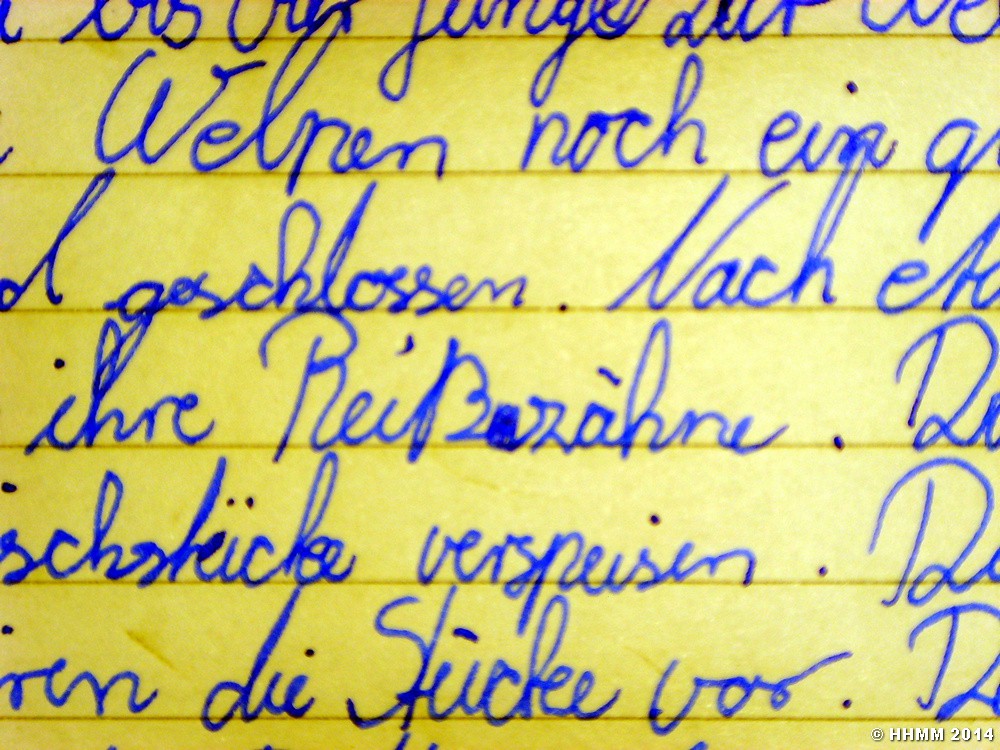 bis vier junge zur We
Welpen noch ein g
d geschlossen. Nach etw
ihre Reißzähne. Du
schstücke verspeisen. De
ren die Stücke vor. D
© HHMM 2014